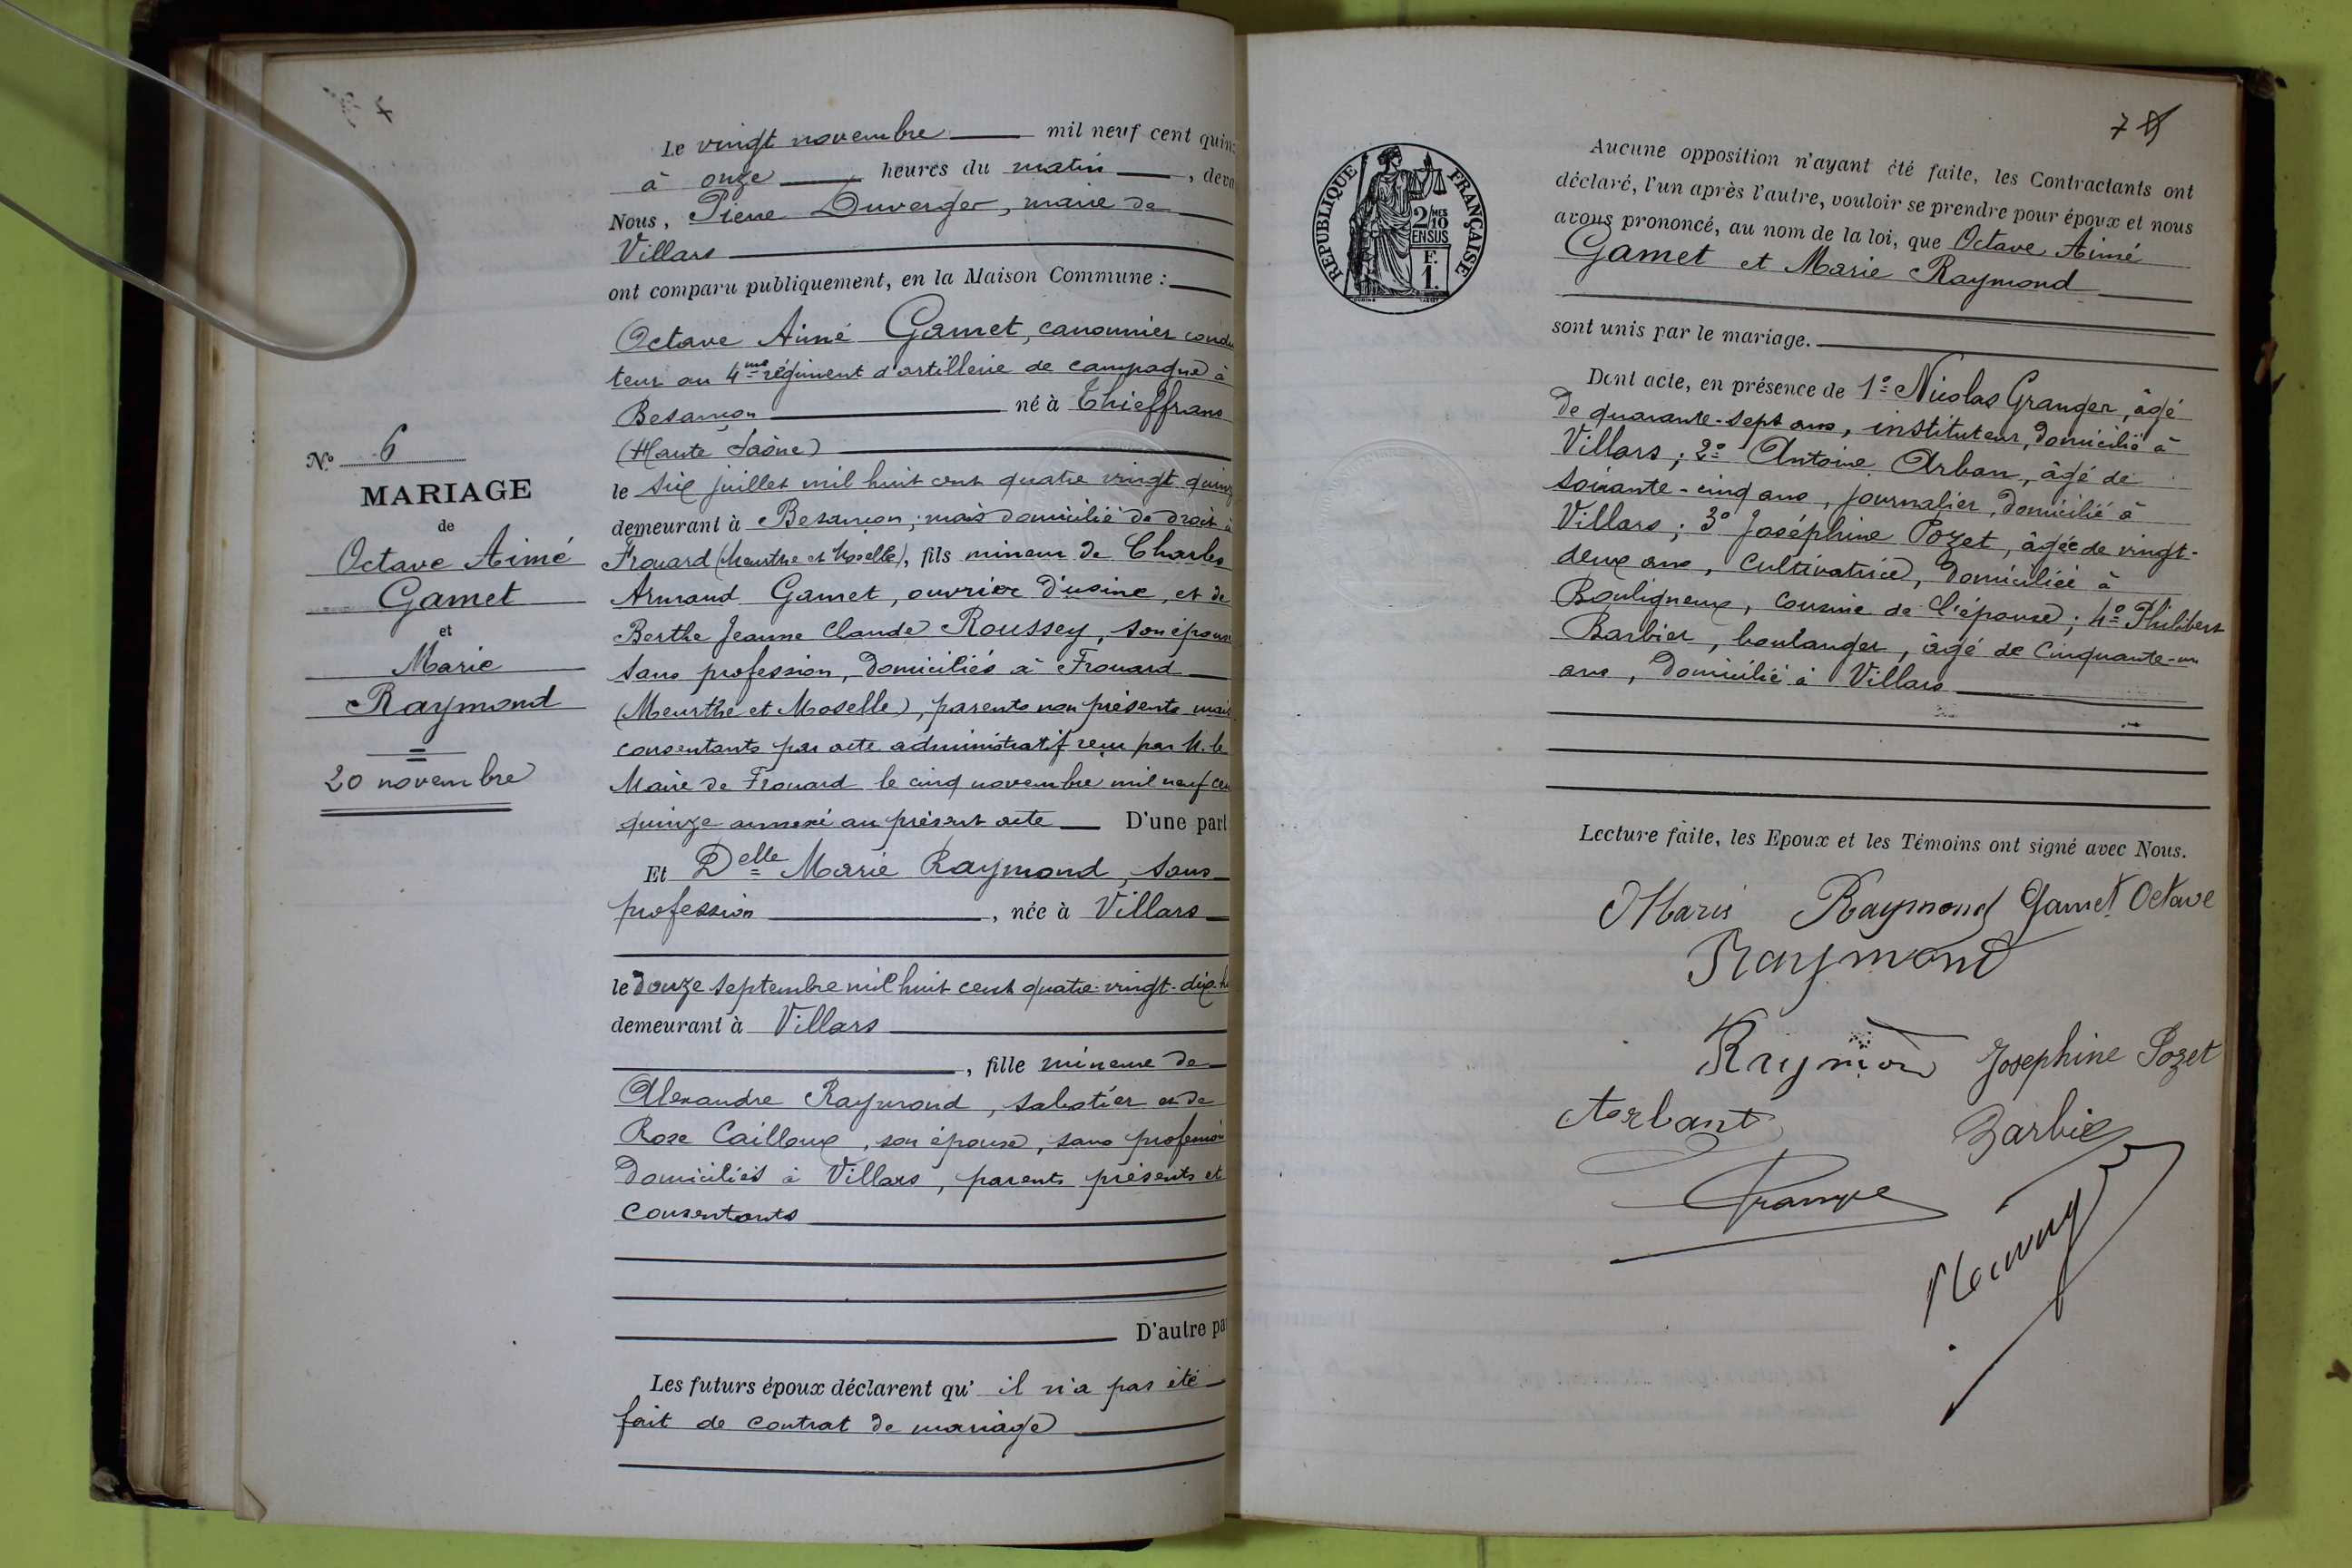 Le vingt novembre mil neuf cent quin
à onze heures du matin, deva
Nous, Pierre Duverger, maire de
Villars
ont comparu publiquement, en la Maison Commune :
Octave Aimé Gamet, canonnier conduc
teur au 4me régiment d'artillerie de campagne à
Besançon né à Thieffrans
(Haute Saône)
le six juillet mil huit cent quatre vingt quinz
demeurant à Besançon; mais domicilié de droit à
Frouard (Meurthe et Moselle), fils mineur de Charles
Armand Gamet, ouvrier d'usine, et de
Berthe Jeanne Claude Roussey, son épouse
sans profession, domiciliés à Frouard
(Meurthe et Moselle), parents non présents mais
consentants par acte administratif reçu par M. le
Maire de Frouard le cinq novembre mil neuf cen
quinze annexé au présent acte D'une part
Et Delle Marie Raymond, sans
profession, née à Villars
le douze septembre mil huit cent quatre-vingt-dix-hu
demeurant à Villars
, fille mineure de
Alexandre Raymond, sabotier et de
Rose Cailloux, son épouse, sans profession
domiciliés à Villars, parents présents et
consentants
D'autre pa
Les futurs époux déclarent qu' il n'a pas été
fait de contrat de mariage
N.° 6
MARIAGE
de
Octave Aimé
Gamet
et
Marie
Raymond
20 novembre
7
REPUBLIQUE FRANÇAISE
2/10 MES
EN SUS
F.
1.
Aucune opposition n'ayant été faite, les Contractants ont
déclaré, l'un après l'autre, vouloir se prendre pour époux et nous
avons prononcé, au nom de la loi, que Octave Aimé
Gamet et Marie Raymond
sont unis par le mariage.
Dont acte, en présence de 1° Nicolas Granger, âgé
de quarante-sept ans, instituteur, domicilié à
Villars; 2° Antoine Arban, âgé de
soixante-cinq ans, journalier, domicilié à
Villars; 3° Joséphine Pozet, âgée de vingt-
deux ans, cultivatrice, domiciliée à
Bouligneux, cousine de l'épouse; 4° Philibert
Barbier, boulanger, âgé de cinquante-un
ans, domicilié à Villars
Lecture faite, les Epoux et les Témoins ont signé avec Nous.
Marie Raymond Gamet Octave
Raymond
Raymon Josephine Pozet
Arbant Barbier